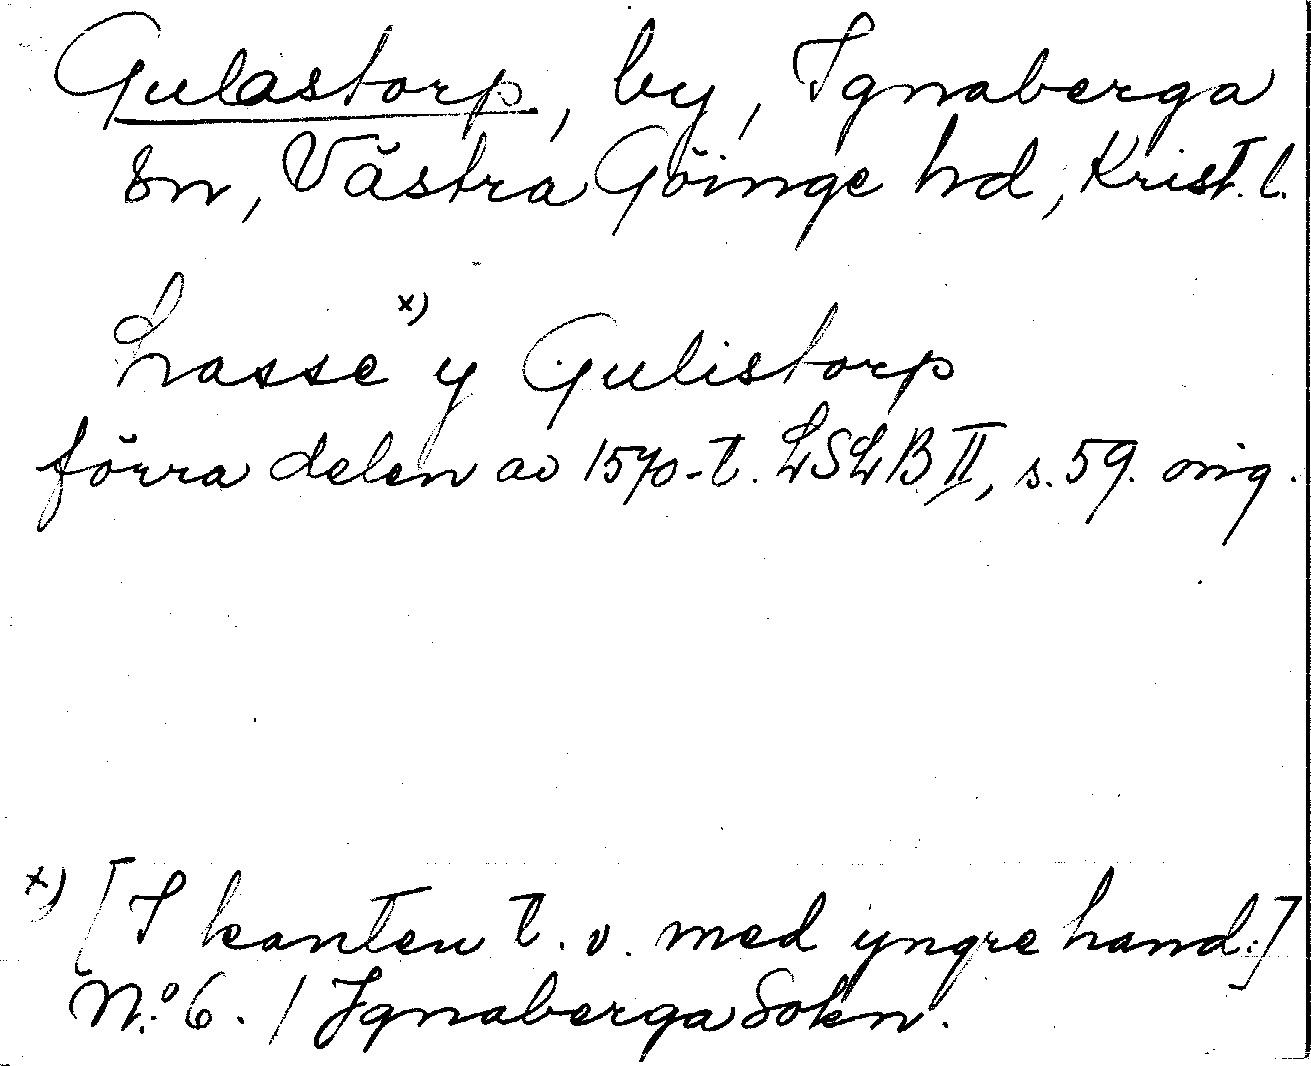 Gulastorp, by, Ignaberga
sn, Västra Göinge hd, Krist. l.
Lasse x) y Gulistorp
förra delen av 1570-t. LSLB II, s. 59. orig.
x) [I kanten t. v. med yngre hand:]
N:o 6. / Ignaberga Sokn.